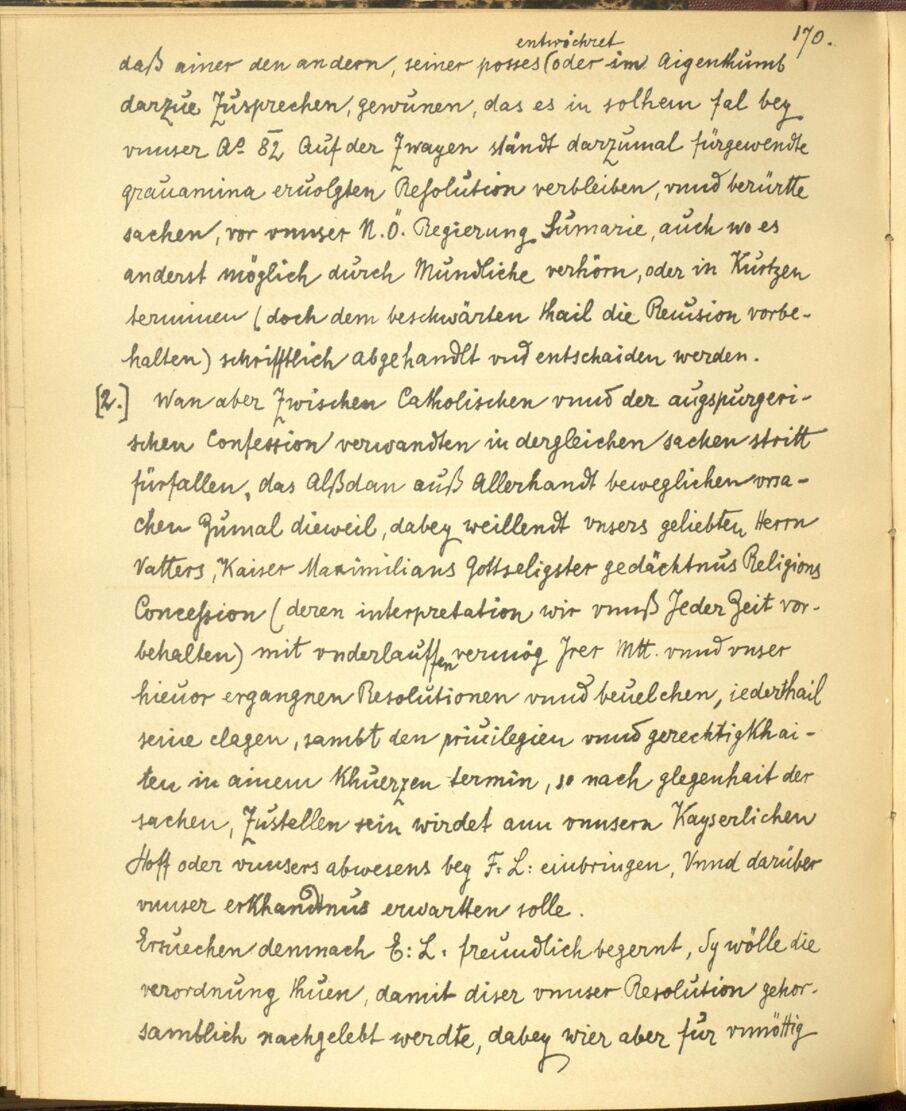 170.
entwöchret
daß ainer den andern, seiner posses (oder im Aigenthumb
darzue Zusprechen, gewunen, das es in solhem fal bey
vnnser Aº 82 Auf der Zwayen ständt darzumal fürgewendte
grauamina eruolgten Resolution verbleiben, vnnd berürtte
sachen, vor vnnser N. Ö. Regierung Sumarie, auch wo es
anderst möglich durch Mündliche verhörn, oder in Kurtzen
terminen (doch dem beschwärten thail die Reuision vorbe-
halten) schrifftlich abgehandlt vnd entschaiden werden.
[2.] Wan aber Zwischen Catholischen vnnd der augspurgeri-
schen Confession verwandten in dergleichen sachen stritt
fürfallen, das Alßdan auß Allerhandt beweglichen vrsa-
chen Zumal dieweil, dabey weillendt vnsers geliebten Herrn
Vatters, Kaiser Maximilians Gottseligster gedächtnus Religions
Concession (deren interpretation wir vnnß Jeder Zeit vor-
behalten) mit vnderlauffen vermög Jrer Mtt. vnnd vnser
hieuor ergangnen Resolutionen vnnd beuelchen, iederthail
seine clagen, sambt den priuilegien vnnd gerechtigKhai-
ten in ainem Khuerzen termin, so nach glegenhait der
sachen, Zustellen sein wirdet ann vnnsern Kayserlichen
Hoff oder vnnsers abwesens bey F: L: einbringen, Vnnd darüber
vnnser erKhandtnus erwartten solle.
Ersuechen demnach E: L: freundlich begernt, Sy wölle die
verordnung thuen, damit diser vnnser Resolution gehor-
samblich nachgelebt werdte, dabey wier aber für vnnöttig